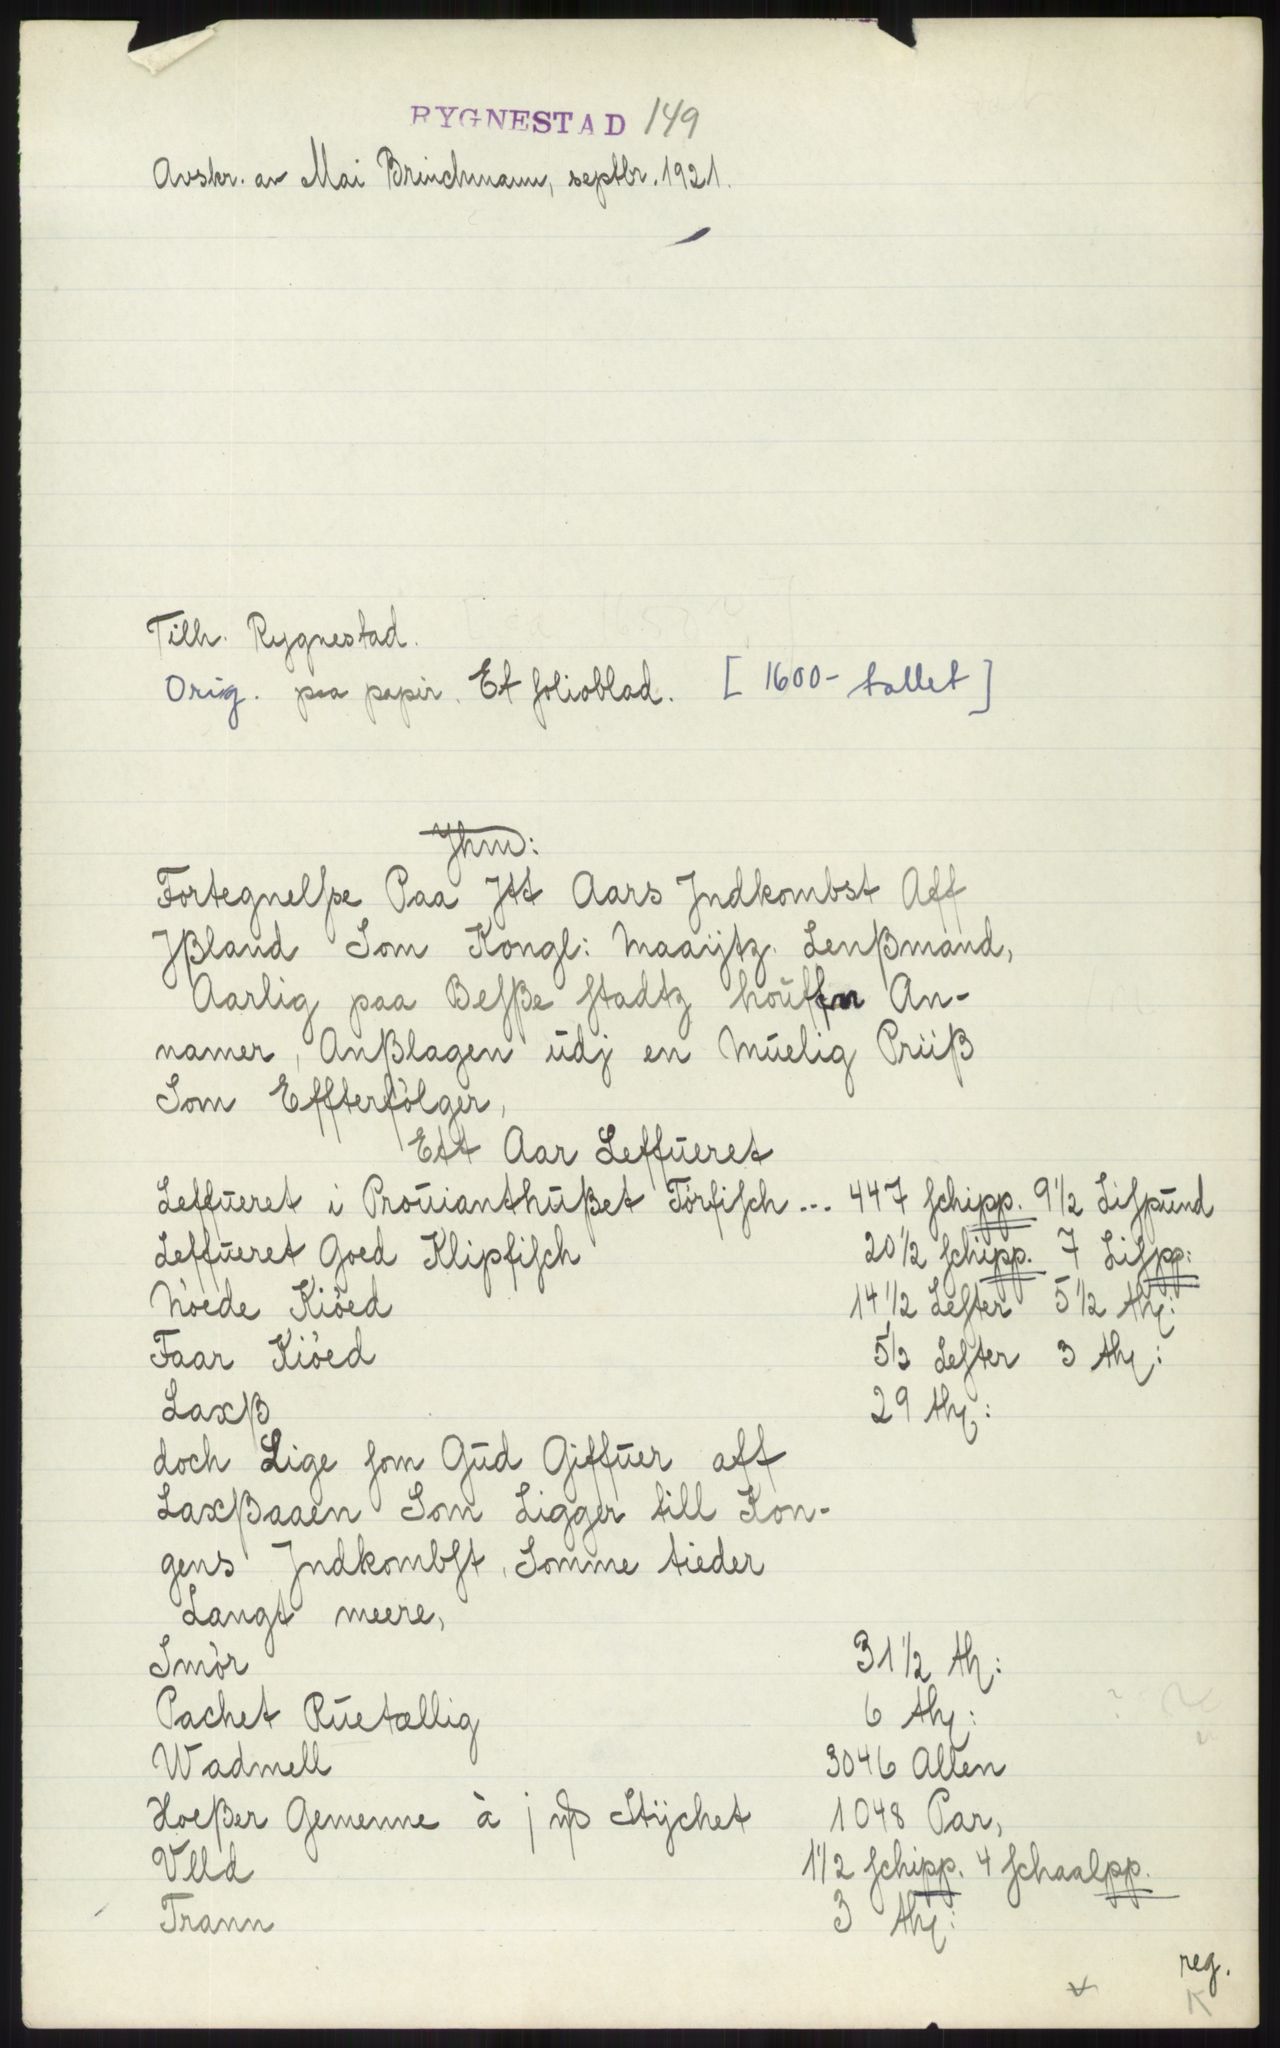 RYGNESTAD 149
Avskr. av Mai Brinchmann, septbr. 1921.
Tilh. Rygnestad.
Orig. paa papir. Et folioblad. [1600-tallet]
Jhm:
Fortegnelsse Paa Jtt Aars Jndkombst Aff
Jßland Som Kongl: Maaÿtz. Lenßmand,
Aarlig paa Besße stadtz houffn An-
namer, Anßlagen udj en Muelig Priiß
Som Effterfölger,
Ett Aar Leffueret
Leffueret i Prouianthußet Törfisch... 447 schipp. 9½ Lispund
Leffueret Goed Klipfisch 20½ schipp. 7 Lispp:
Nöede Kiöed 14½ Lester 5½ thr:
Faar Kiöed 5½ Lester 3 thr:
Laxß 29 thr:
doch Lige som Gud Giffuer aff
Laxßaaen Som Ligger till Kon-
gens Jndkombst, Somme tieder
Langt meere,
Smör 31½ th:
Pachet Ruetællig 6 thr:
Wadmell 3046 Allen
Hoeßer Gemenne à j Stÿchet 1048 Par,
Vlld 1½ schipp. 4 schaalpp.
Trann 3 thr:
reg.